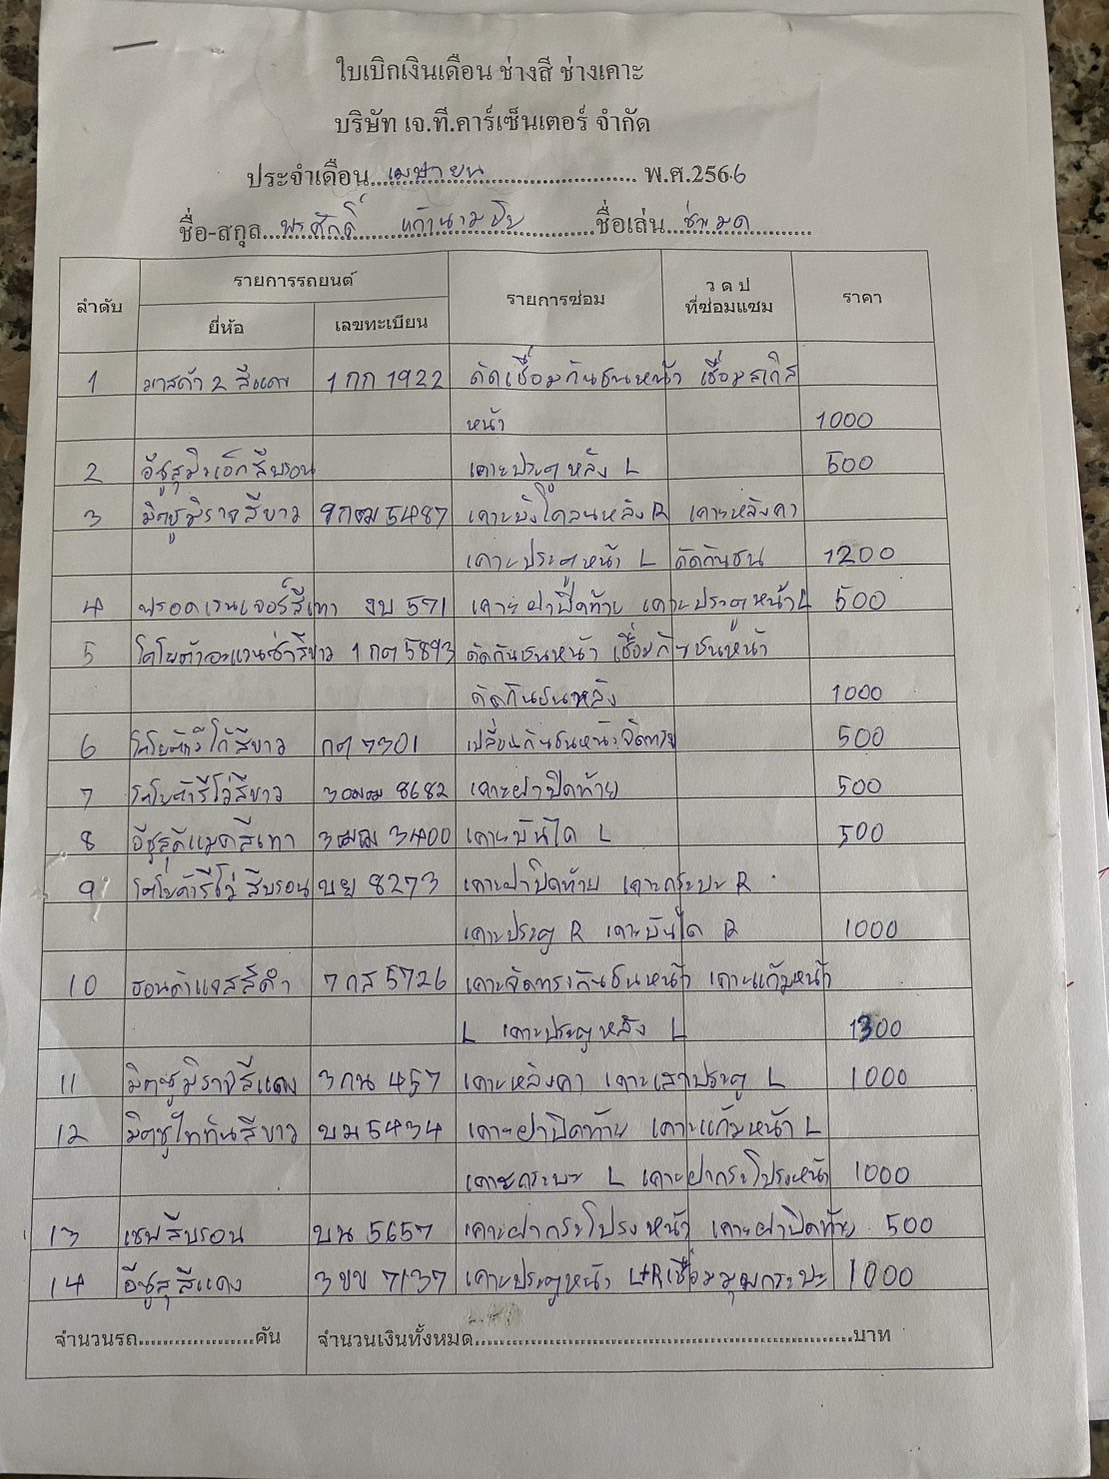 ใบเบิกเงินเดือน ช่างสี ช่างเคาะ
บริษัท เจ.ที.คาร์เซ็นเตอร์ จำกัด
ประจำเดือน...เมษายน... พ.ศ.2566
ชื่อ-สกุล...พรศักดิ์...ชื่อเล่น...ช่างมด...
ลำดับ รายการรถยนต์ รายการซ่อม ว ด ป ที่ซ่อมแซม ราคา
ยี่ห้อ เลขทะเบียน
1 มาสด้า 2 สีแดง 1 กก 1922 ดัดเชื่อมกันชนหน้า เชื่อมสเกิส
หน้า 1000
2 อีซูสุมิวเอ็กสีบรอน เคาะประตูหลัง L 500
3 มิตซูมิราจสีขาว 9กฒ 5487 เคาะบังโคลนหลัง R เคาะหลังคา
เคาะประตูหน้า L ดัดกันชน 1200
4 ฟรอดเรนเจอร์สีเทา งบ 571 เคาะฝาปิดท้าย เคาะประตูหน้า L 500
5 โตโยต้าอะแวนซ่าสีขาว 1 กต 5893 ดัดกันชนหน้า เชื่อมกันชนหน้า
ดัดกันชนหลัง 1000
6 โตโยต้าวีโก้สีขาว กต 7301 เปลี่ยนกันชนหน้าจัดทรง 500
7 โตโยต้ารีโว่สีขาว 3ฒฒ 8682 เคาะฝาปิดท้าย 500
8 อีซูสุดีแมคสีเทา 3ฒฒ 3400 เคาะบันได L 500
9 โตโยต้ารีโว่ สีบรอน บย 8273 เคาะฝาปิดท้าย เคาะกระบะ R
เคาะประตู R เคาะบันได R 1000
10 ฮอนด้าแจสสีดำ 7 กส 5726 เคาะจัดทรงกันชนหน้า เคาะแก้มหน้า
L เคาะประตูหลัง L 1300
11 มิตซูมิราจสีแดง 3 กน 457 เคาะหลังคา เคาะเสาประตู L 1000
12 มิตซูไททันสีขาว บม 5434 เคาะฝาปิดท้าย เคาะแก้มหน้า L
เคาะกระบะ L เคาะฝากระโปรงหน้า 1000
13 เชฟสีบรอน บน 5657 เคาะฝากระโปรงหน้า เคาะฝาปิดท้าย 500
14 อีซูสุสีแดง 3 ขข 7137 เคาะประตูหน้า L+R เชื่อมมุมกระบะ 1000
จำนวนรถ....................คัน จำนวนเงินทั้งหมด....................บาท